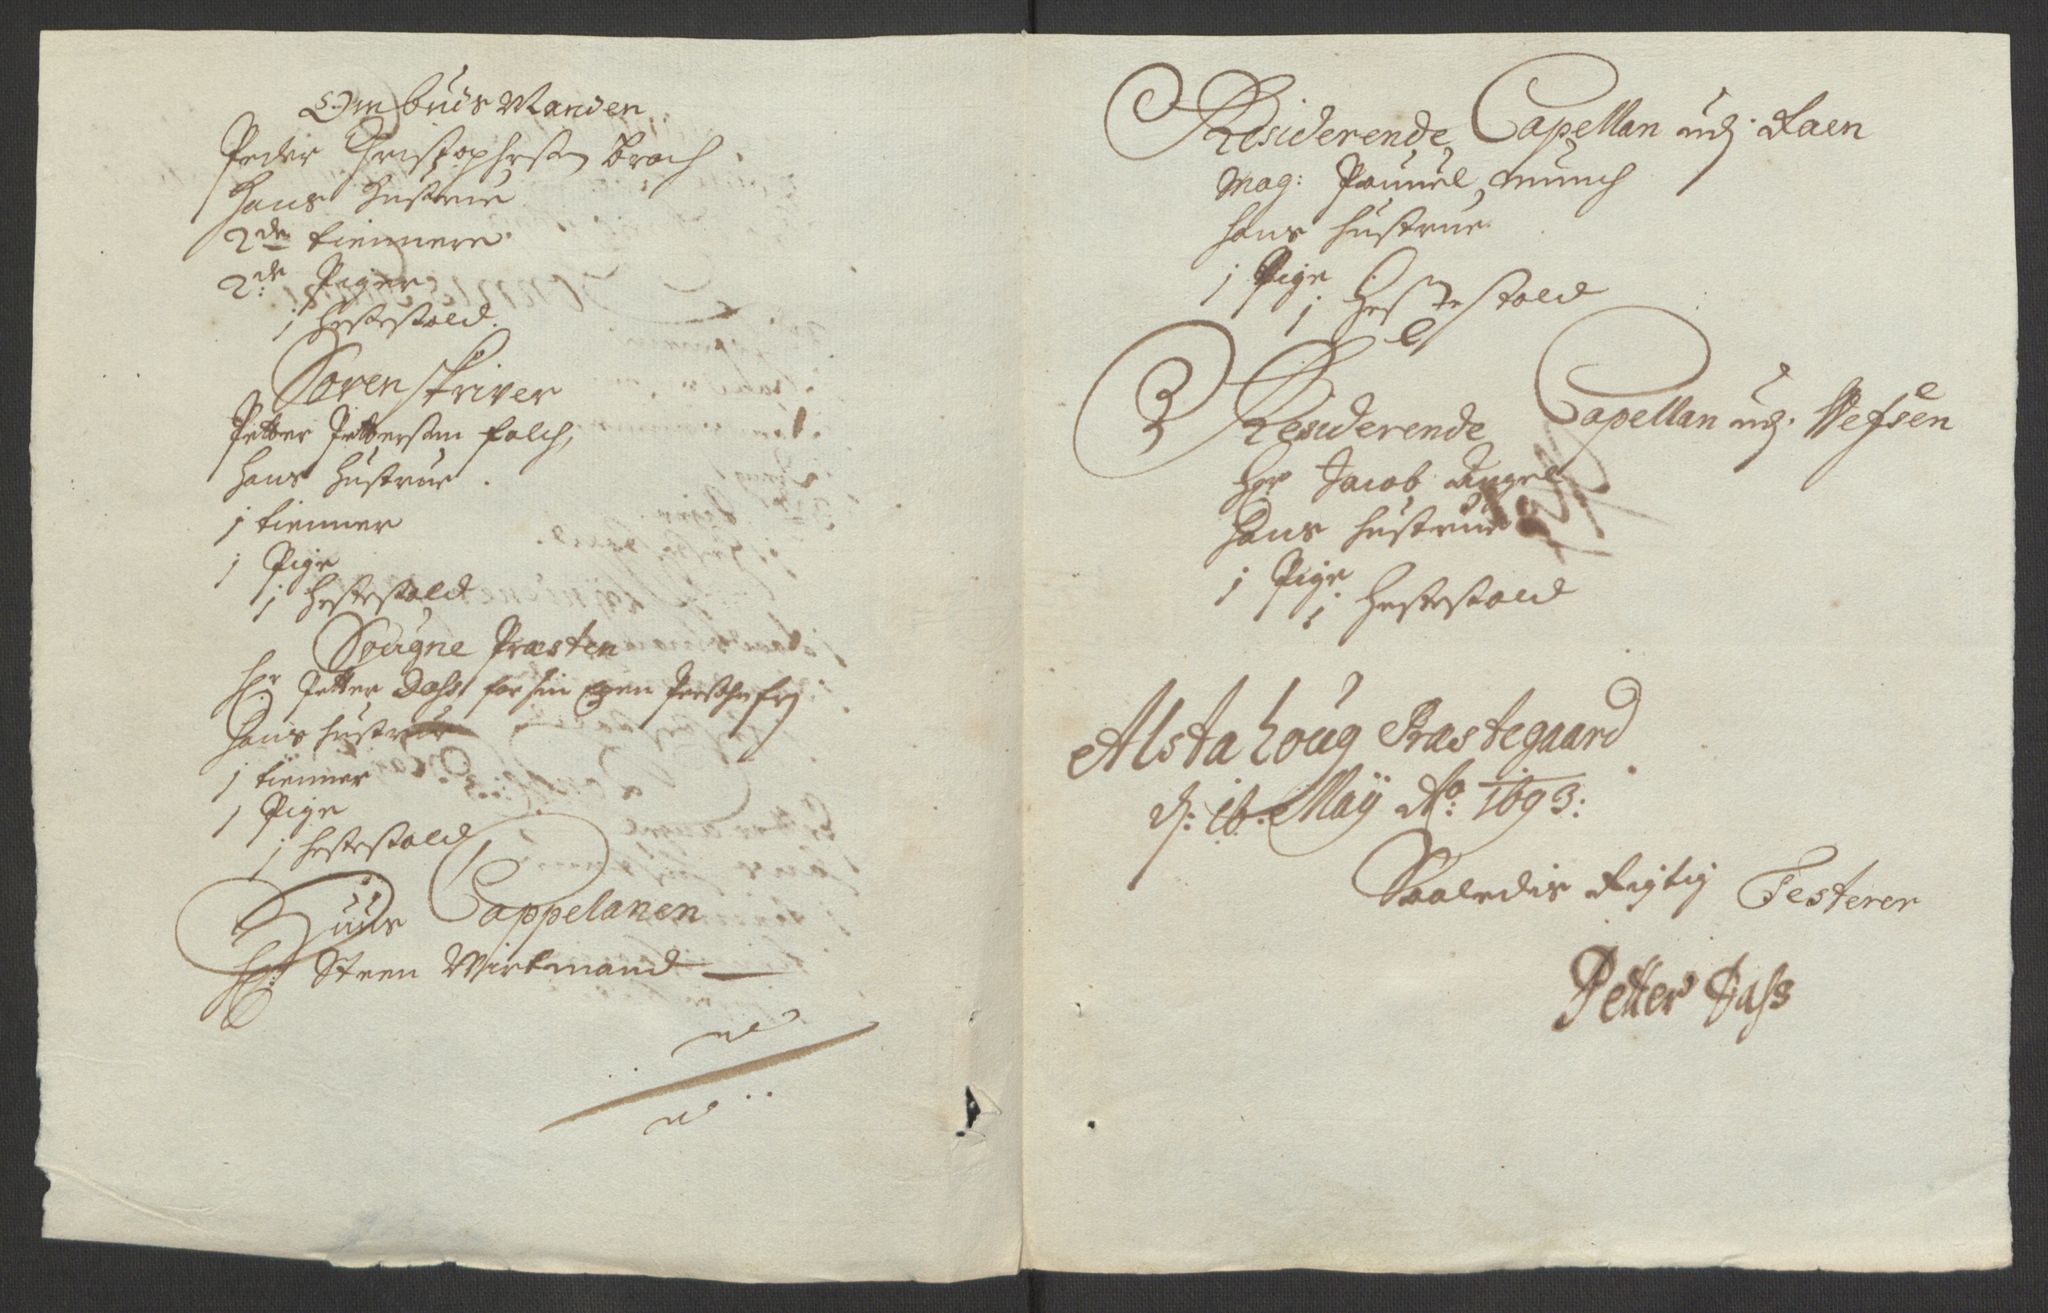 Ombuds Manden
Peder Christophersen Broch
Hans Hustrue
2de tiennere
2de Piger
1 hestestald
Sorenskriver
Petter Pettersen falch,
hans hustrue
1 tienner
1 Pige
1 hestestald
Sougne Præsten
Hr Petter Dass for sin egen Persohn frj
hans hustrue
1 tienner
1 Pige
1 hestestald
Huus Cappelanen
Hr: Steen Wirtmand
Residerende Capellan udj Raen
Mag: Pouuel Munch
hans hustrue
1 Pige
1 hestestald
Residerende Capellan udj Wefsen
Hr Jacob Angel
Hans hustrue
1 Pige
1 hestestald
Alstahoug Præstegaard
d: 16 Maij Ao: 1693:
Saaledis Rigtig Testerer
Petter Dass